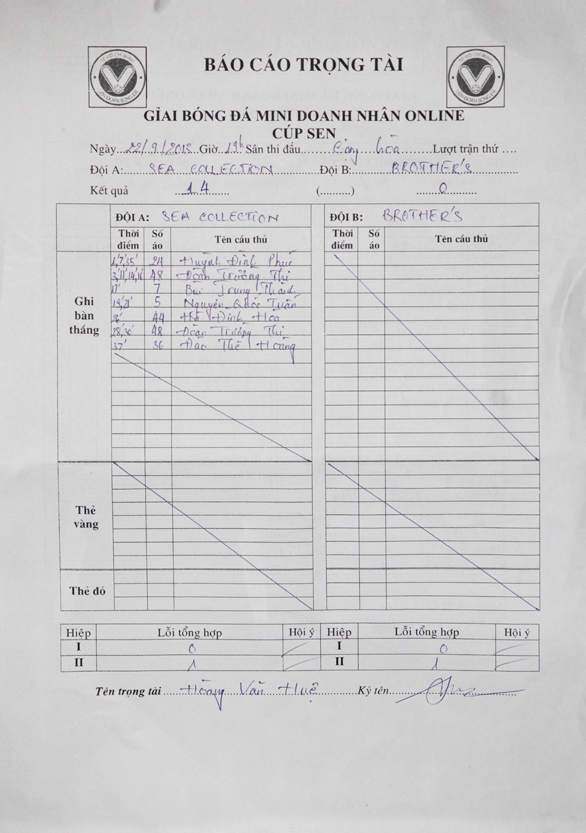 BÁO CÁO TRỌNG TÀI
GIẢI BÓNG ĐÁ MINI DOANH NHÂN ONLINE
CÚP SEN
Ngày 22/9/2013 Giờ 19h Sân thi đấu Lượt trận thứ
Đội A: SEA COLLECTION Đội B: BROTHER'S
Kết quả 14 (..........) 0
ĐỘI A: SEA COLLECTION ĐỘI B: BROTHER'S
Thời điểm Số áo Tên cầu thủ Thời điểm Số áo Tên cầu thủ
Ghi bàn thắng
Huỳnh Đình Phúc
48 Đoàn Trường Thi
17' 7 Bùi Trung Thành
15',21' 5 Nguyễn Quốc Tuấn
44 Hồ Đình Hoà
28',30' 48 Đoàn Trường Thi
37' 36 Đào Thế Hoàng
Thẻ vàng
Thẻ đỏ
Hiệp Lỗi tổng hợp Hội ý Hiệp Lỗi tổng hợp Hội ý
I 0 I 0
II 1 II 1
Tên trọng tài Hoàng Văn Huệ Ký tên